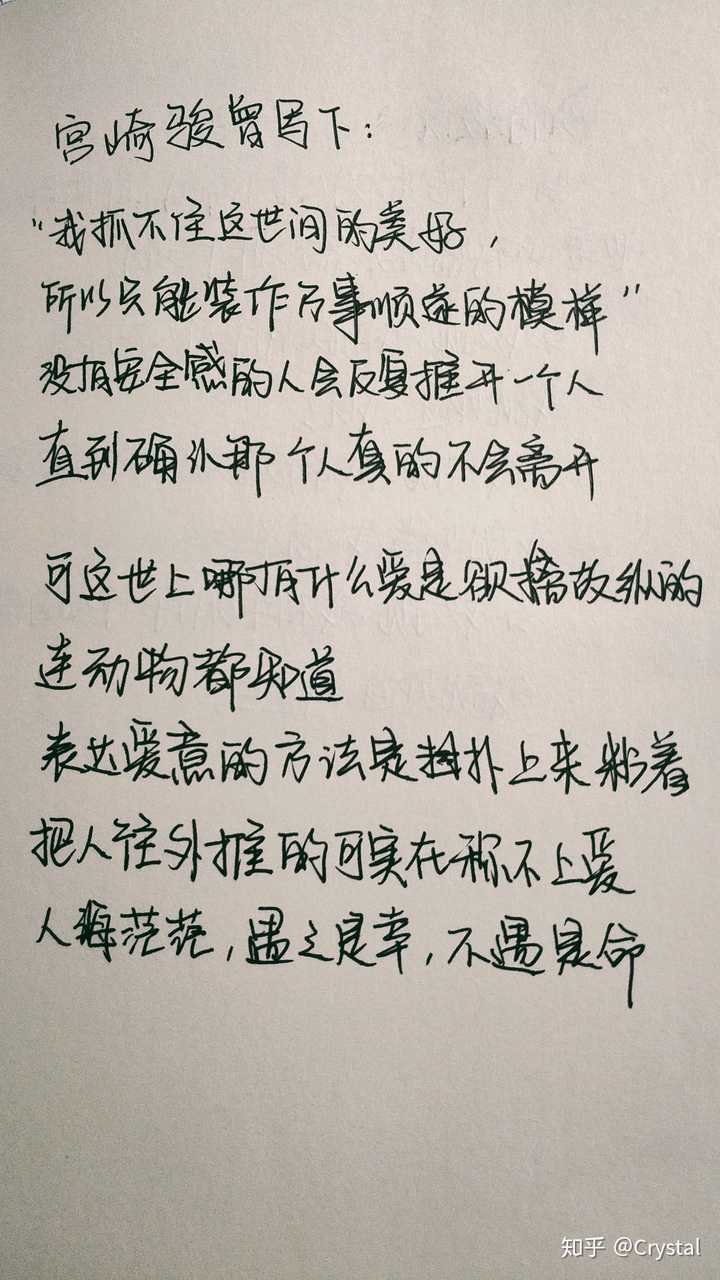 宫崎骏曾写下：
“我抓不住这世间的美好，
所以只能装作万事顺遂的模样”
没有安全感的人会反复推开一个人
直到确认那个人真的不会离开
可这世上哪有什么爱是欲擒故纵的
连动物都知道
表达爱意的方法是扑上来粘着
把人往外推的可实在称不上爱
人海茫茫，遇之是幸，不遇是命
知乎 @Crystal